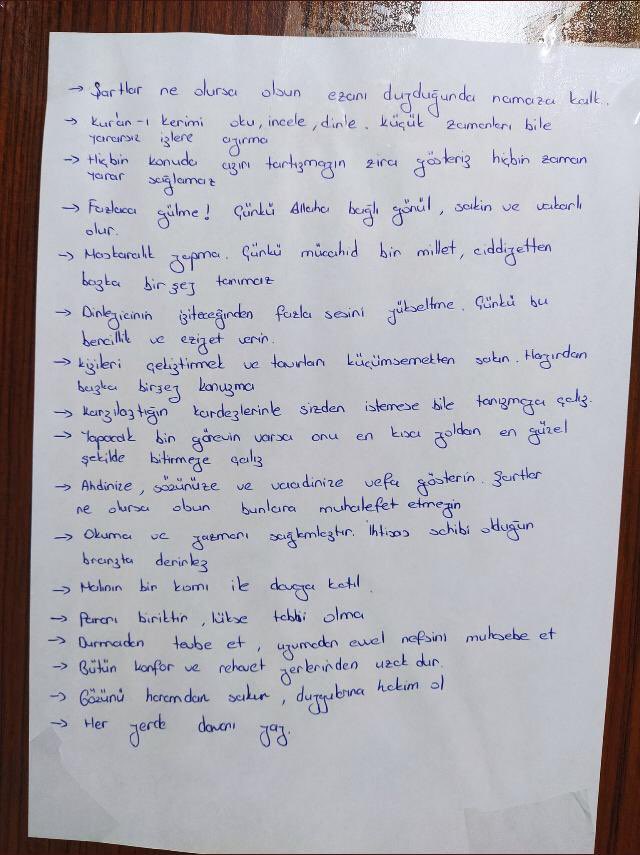 → Şartlar ne olursa olsun ezanı duyduğunda namaza kalk..
→ Kur'an-ı kerimi oku, incele, dinle. Küçük zamanları bile
yararsız işlere ayırma
→ Hiçbir konuda aşırı tartışmayın zira gösteriş hiçbir zaman
yarar sağlamaz
→ Fazlaca gülme! Çünkü Allaha bağlı gönül, sakin ve vakarlı
olur.
→ Maskaralık yapma. Çünkü mücahid bir millet, ciddiyetten
başka bir şey tanımaz
→ Dinleyicinin işiteceğinden fazla sesini yükseltme. Çünkü bu
bencillik ve eziyet verir.
→ Kişileri çekiştirmek ve tavırları küçümsemekten sakın. Hayırdan
başka birşey konuşma
→ Karşılaştığın kardeşlerinle sizden istemese bile tanışmaya çalış.
→ Yapacak bir görevin varsa onu en kısa yoldan en güzel
şekilde bitirmeye çalış
→ Ahdinize, sözünüze ve vaadinize vefa gösterin. Şartlar
ne olursa olsun bunlara muhalefet etmeyin
→ Okuma ve yazmanı sağlamlaştır. İhtisas sahibi olduğun
branşta derinleş
→ Malının bir kısmı ile davaya katıl.
→ Paranı biriktir, lükse tabi olma
→ Durmadan tevbe et, uyumadan evvel nefsini muhasebe et
→ Bütün konfor ve rehavet yerlerinden uzak dur.
→ Gözünü haramdan sakın, duygularına hakim ol
→ Her yerde davanı yay.